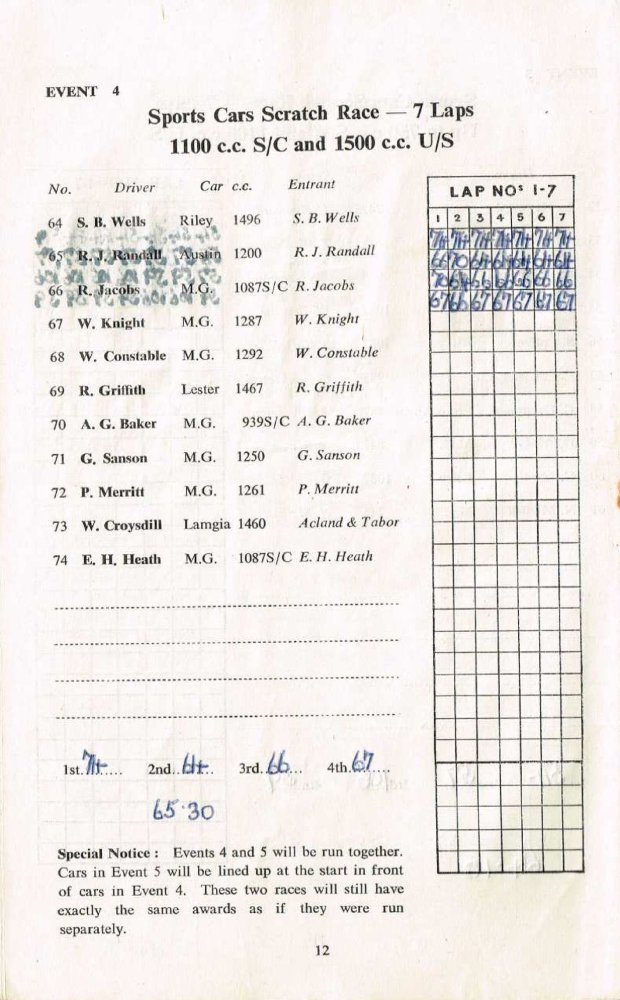 EVENT 4
Sports Cars Scratch Race — 7 Laps
1100 c.c. S/C and 1500 c.c. U/S
No. Driver Car c.c. Entrant
64 S. B. Wells Riley 1496 S. B. Wells
65 R. J. Randall Austin 1200 R. J. Randall
66 R. Jacobs M.G. 1087S/C R. Jacobs
67 W. Knight M.G. 1287 W. Knight
68 W. Constable M.G. 1292 W. Constable
69 R. Griffith Lester 1467 R. Griffith
70 A. G. Baker M.G. 939S/C A. G. Baker
71 G. Sanson M.G. 1250 G. Sanson
72 P. Merritt M.G. 1261 P. Merritt
73 W. Croysdill Lamgia 1460 Acland & Tabor
74 E. H. Heath M.G. 1087S/C E. H. Heath
LAP NOS 1-7
1 2 3 4 5 6 7
74 74 74 74 74 74 74
66 70 64 64 64 64 64
70 64 66 66 66 66 66
67 66 67 67 67 67 67
1st. 74 2nd. 64 3rd. 66 4th. 67
65·30
Special Notice : Events 4 and 5 will be run together.
Cars in Event 5 will be lined up at the start in front
of cars in Event 4. These two races will still have
exactly the same awards as if they were run
separately.
12